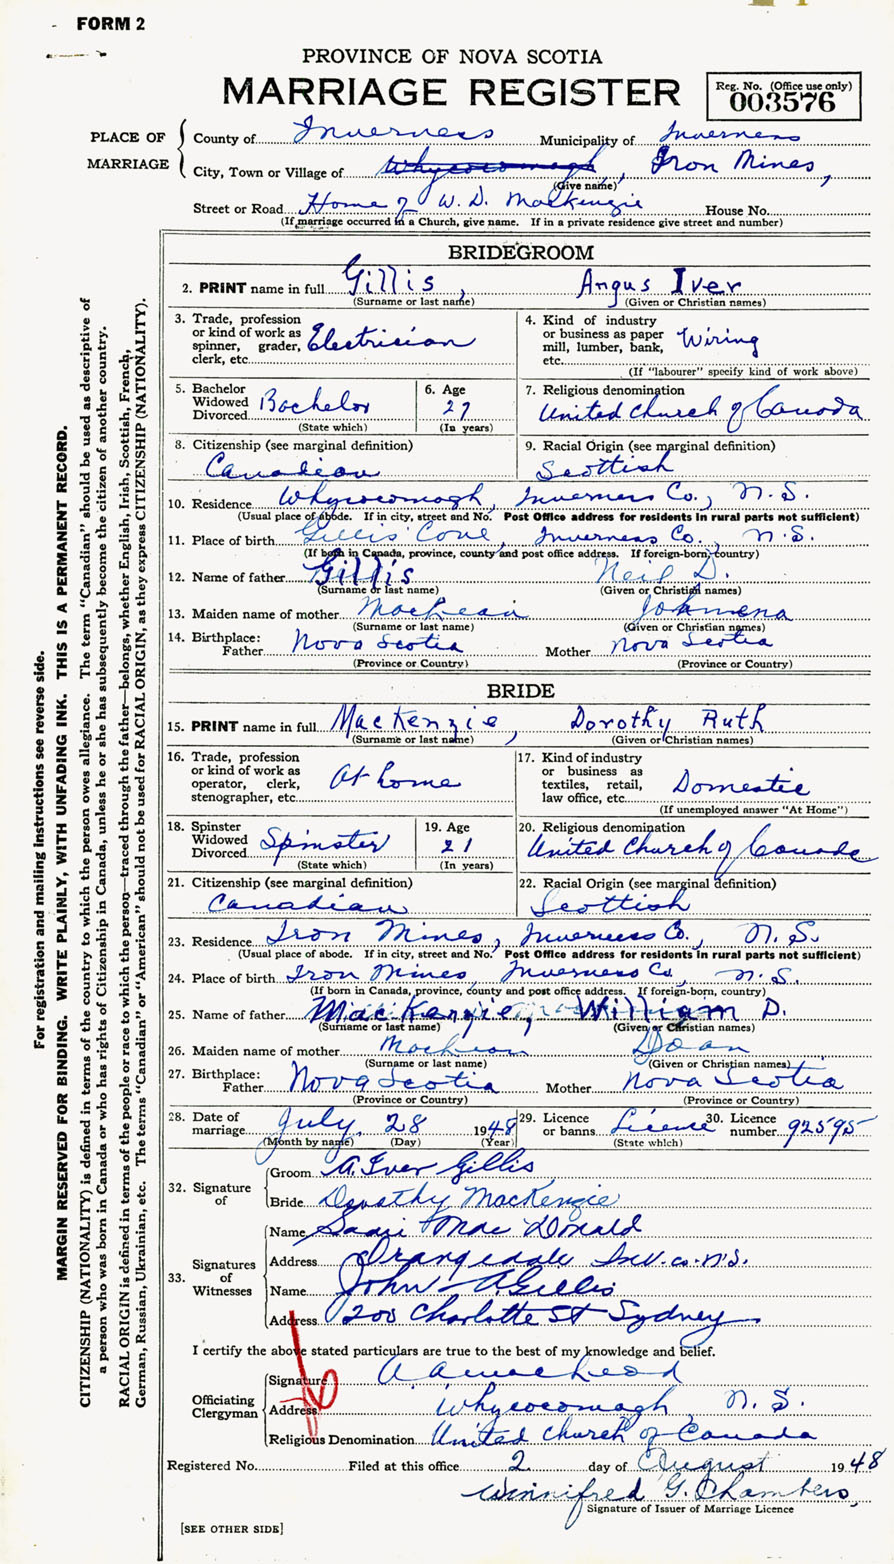 FORM 2
PROVINCE OF NOVA SCOTIA
MARRIAGE REGISTER
Reg. No. (Office use only)
003576
PLACE OF MARRIAGE
County of Inverness Municipality of Inverness
City, Town or Village of Whycocomagh, Iron Mines,
(Give name)
Street or Road Home of W. D. MacKenzie House No.
(If marriage occurred in a Church, give name. If in a private residence give street and number)
BRIDEGROOM
2. PRINT name in full Gillis, Angus Iver
(Surname or last name) (Given or Christian names)
3. Trade, profession or kind of work as spinner, grader, clerk, etc. Electrician
4. Kind of industry or business as paper mill, lumber, bank, etc. Wiring
(If "labourer" specify kind of work above)
5. Bachelor Widowed Divorced Bachelor
(State which)
6. Age 27
(In years)
7. Religious denomination United Church of Canada
8. Citizenship (see marginal definition) Canadian
9. Racial Origin (see marginal definition) Scottish
10. Residence Whycocomagh, Inverness Co., N.S.
(Usual place of abode. If in city, street and No. Post Office address for residents in rural parts not sufficient)
11. Place of birth Gillis Cove, Inverness Co., N.S.
(If born in Canada, province, county and post office address. If foreign-born, country)
12. Name of father Gillis Neil D.
(Surname or last name) (Given or Christian names)
13. Maiden name of mother MacLean Johnena
(Surname or last name) (Given or Christian names)
14. Birthplace: Father Nova Scotia Mother Nova Scotia
(Province or Country) (Province or Country)
BRIDE
15. PRINT name in full MacKenzie, Dorothy Ruth
(Surname or last name) (Given or Christian names)
16. Trade, profession or kind of work as operator, clerk, stenographer, etc. At home
17. Kind of industry or business as textiles, retail, law office, etc. Domestic
(If unemployed answer "At Home")
18. Spinster Widowed Divorced Spinster
(State which)
19. Age 21
(In years)
20. Religious denomination United Church of Canada
21. Citizenship (see marginal definition) Canadian
22. Racial Origin (see marginal definition) Scottish
23. Residence Iron Mines, Inverness Co., N.S.
(Usual place of abode. If in city, street and No. Post Office address for residents in rural parts not sufficient)
24. Place of birth Iron Mines, Inverness Co., N.S.
(If born in Canada, province, county and post office address. If foreign-born, country)
25. Name of father MacKenzie, William D.
(Surname or last name) (Given or Christian names)
26. Maiden name of mother MacLean
(Surname or last name) (Given or Christian names)
27. Birthplace: Father Nova Scotia Mother Nova Scotia
(Province or Country) (Province or Country)
28. Date of marriage July 28 1948
(Month by name) (Day) (Year)
29. Licence or banns Licence
(State which)
30. Licence number 92595
32. Signature of
Groom A. Iver Gillis
Bride Dorothy MacKenzie
33. Signatures of Witnesses
Name Sadie MacDonald
Address Orangedale Inv. Co. N.S.
Name John A. Gillis
Address 200 Charlotte St Sydney
I certify the above stated particulars are true to the best of my knowledge and belief.
Officiating Clergyman
Signature
Address Whycocomagh, N.S.
Religious Denomination United Church of Canada
Registered No. Filed at this office 2 day of August 1948
Winnifred G. Chambers,
Signature of Issuer of Marriage Licence
[SEE OTHER SIDE]
For registration and mailing instructions see reverse side.
MARGIN RESERVED FOR BINDING. WRITE PLAINLY, WITH UNFADING INK. THIS IS A PERMANENT RECORD.
CITIZENSHIP (NATIONALITY) is defined in terms of the country to which the person owes allegiance. The term "Canadian" should be used as descriptive of
a person who was born in Canada or who has rights of Citizenship in Canada, unless he or she has subsequently become the citizen of another country.
RACIAL ORIGIN is defined in terms of the people or race to which the person—traced through the father—belongs, whether English, Irish, Scottish, French,
German, Russian, Ukrainian, etc. The terms "Canadian" or "American" should not be used for RACIAL ORIGIN, as they express CITIZENSHIP (NATIONALITY).